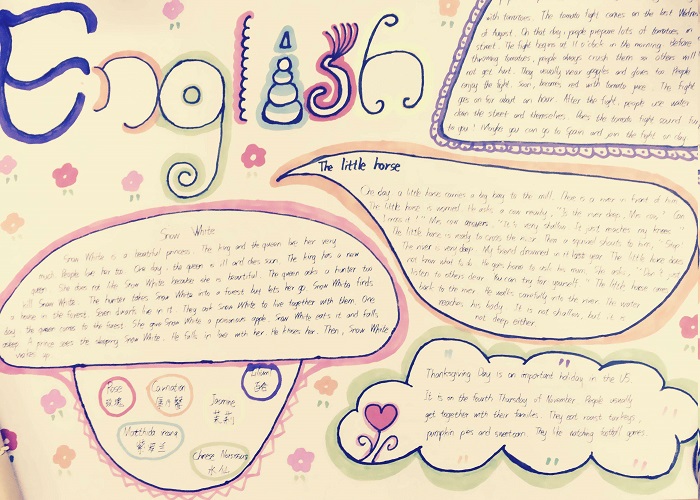 English
with tomatoes. The tomato fight comes on the last
of August. On that day, people prepare lots of tomatoes in
street. The fight begins at 11 o'clock in the morning. Before
throwing tomatoes, people always crush them so others will
not get hurt. They usually wear goggles and gloves too. People
enjoy the fight. Soon, becomes red with tomato juice. The fight
goes on for about an hour. After the fight, people use water
clean the street and themselves. Does the tomato fight sound fun
to you? Maybe you can go to Spain and join the fight one day.
The little horse
One day, a little horse carries a big bag to the mill. There is a river in front of him.
The little horse is worried. He asks a cow nearby, "Is the river deep, Mr. cow? Can
I cross it?" Mr. cow answers, "It's very shallow. It just reaches my knees."
The little horse is ready to cross the river. Then a squirrel shouts to him, "Stop!
The river is very deep. My friend drowned in it last year. The little horse does
not know what to do. He goes home to ask his mum. She says, "Don't just
listen to others dear. You can try for yourself." The little horse comes
back to the river. He walks carefully into the river. The water
reaches his body. It is not shallow, but it is
not deep either.
Snow White
Snow White is a beautiful princess. The king and the queen love her very
much. People love her too. One day, the queen is ill and dies soon. The king has a new
queen. She does not like Snow White because she is beautiful. The queen asks a hunter too
kill Snow White. The hunter takes Snow White into a forest but lets her go. Snow White finds
a house in the forest. Seven dwarfs live in it. They ask Snow White to live together with them. One
day the queen comes to the forest. She gives Snow White a poisonous apple. Snow White eats it and falls
asleep. A prince sees the sleeping Snow White. He falls in love with her. He kisses her. Then, Snow White
wakes up.
Rose
玫瑰
Carnation
康乃馨
Lilium
百合
Jasmine
茉莉
紫罗兰
Chinese Narcissus
水仙
Thanksgiving Day is an important holiday in the US.
It is on the fourth Thursday of November. People usually
get together with their families. They eat roast turkeys,
pumpkin pies and sweetcorn. They like watching football games.